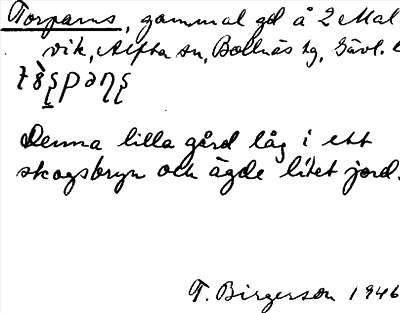 Torparns, gammal gd å 2 Mal
vik, Alfta sn, Bollnäs tg, Gävl. l
Denna lilla gård låg i ett
skogsbryn och ägde litet jord.
T. Birgerson 1946